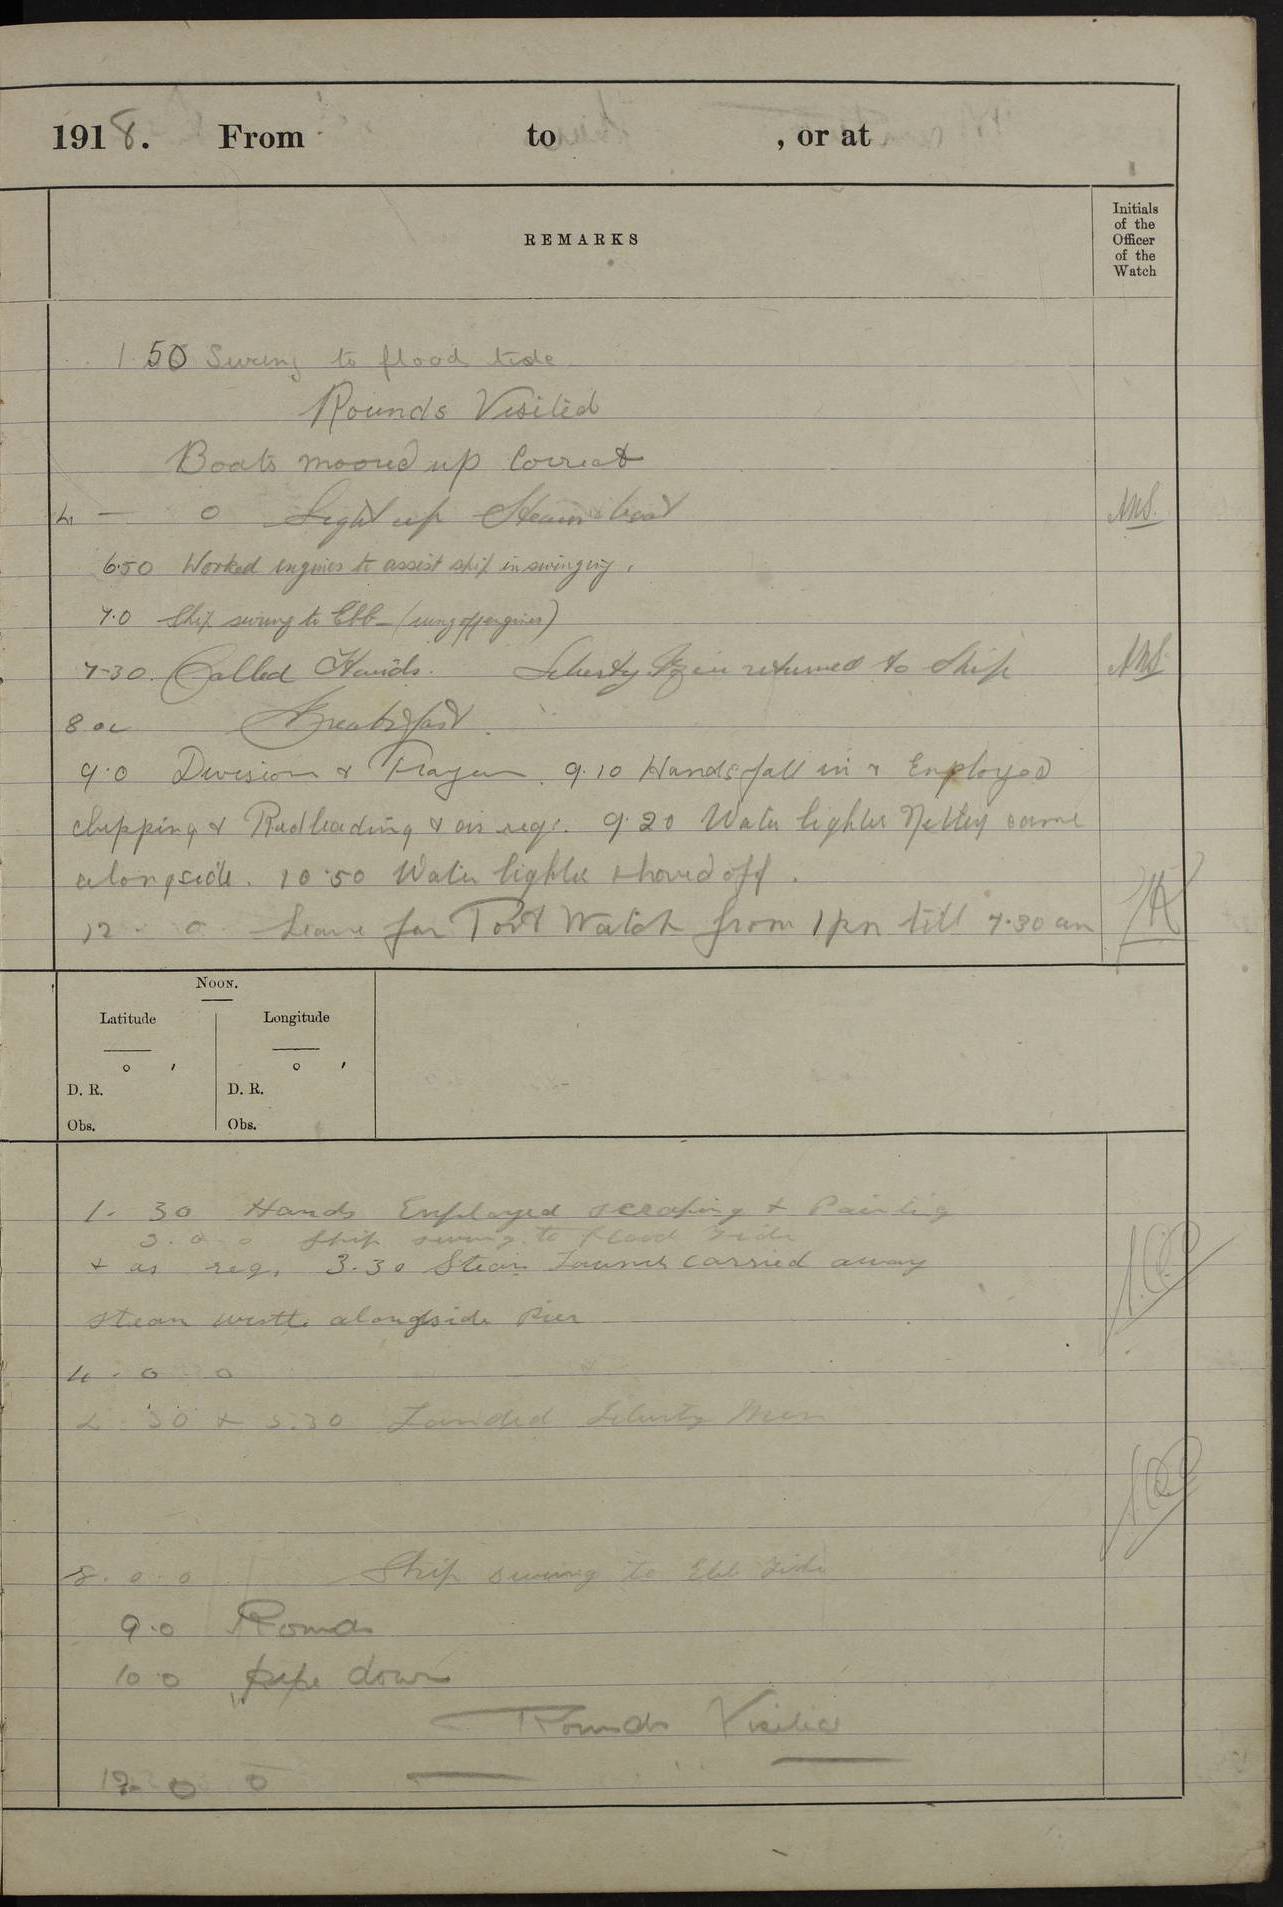 1918. From to , or at
REMARKS
Initials of the Officer of the Watch
1 50 Swung to flood tide
Rounds Visited
Boats moored up Correct
4 — 0 Light up Steam boat
6.50 Worked engines to assist ship in swinging.
7.0 Ship swung to Ebb – (rung off engines)
7-30. Called Hands. Liberty Men returned to Ship
8 oc Breakfast.
9.0 Division & Prayers. 9.10 Hands fall in & Employed
chipping & Redleading & as req:. 9.20 Water lighter Netley came
alongside. 10.50 Water lighter shoved off.
12 - 0 Leave for Port Watch from 1 pm till 7.30 am
NOON.
Latitude Longitude
° ′ ° ′
D. R. D. R.
Obs. Obs.
1. 30 Hands Employed scraping & Painting
3. 0 0 Ship swung to flood Tide
& as req. 3.30 Steam Launch carried away
steam whistle alongside Pier
4 . 0 0
4 30 & 5.30 Landed Liberty Men
8. 0. 0 Ship swung to Ebb Tide
9.0 Rounds
10 0 pipe down
Rounds Visited
12- 0 0